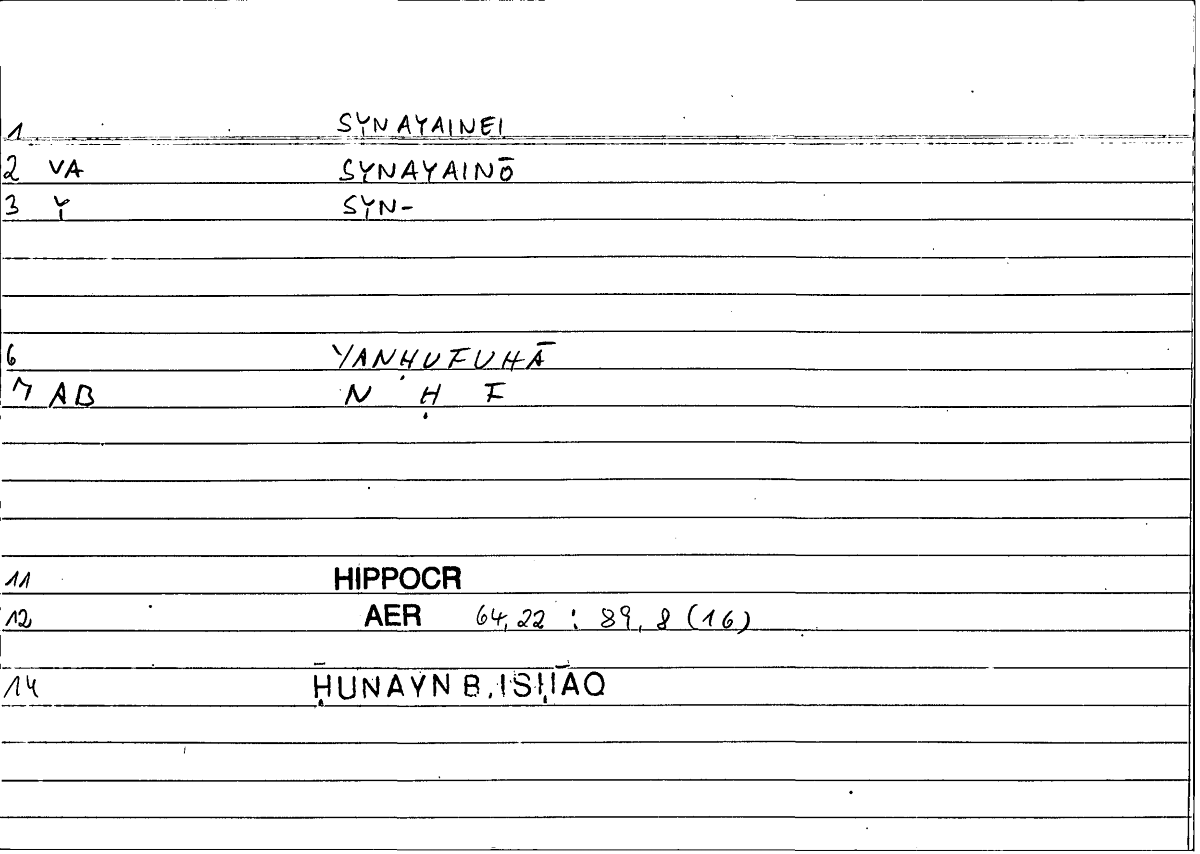 1 SYNAYAINEI
2 VA SYNAYAINŌ
3 Y SYN-
6 YANḤUFUHĀ
7 AB N Ḥ F
11 HIPPOCR
12 AER 64,22 : 89,8 (16)
14 ḤUNAYN B. ISḤĀQ